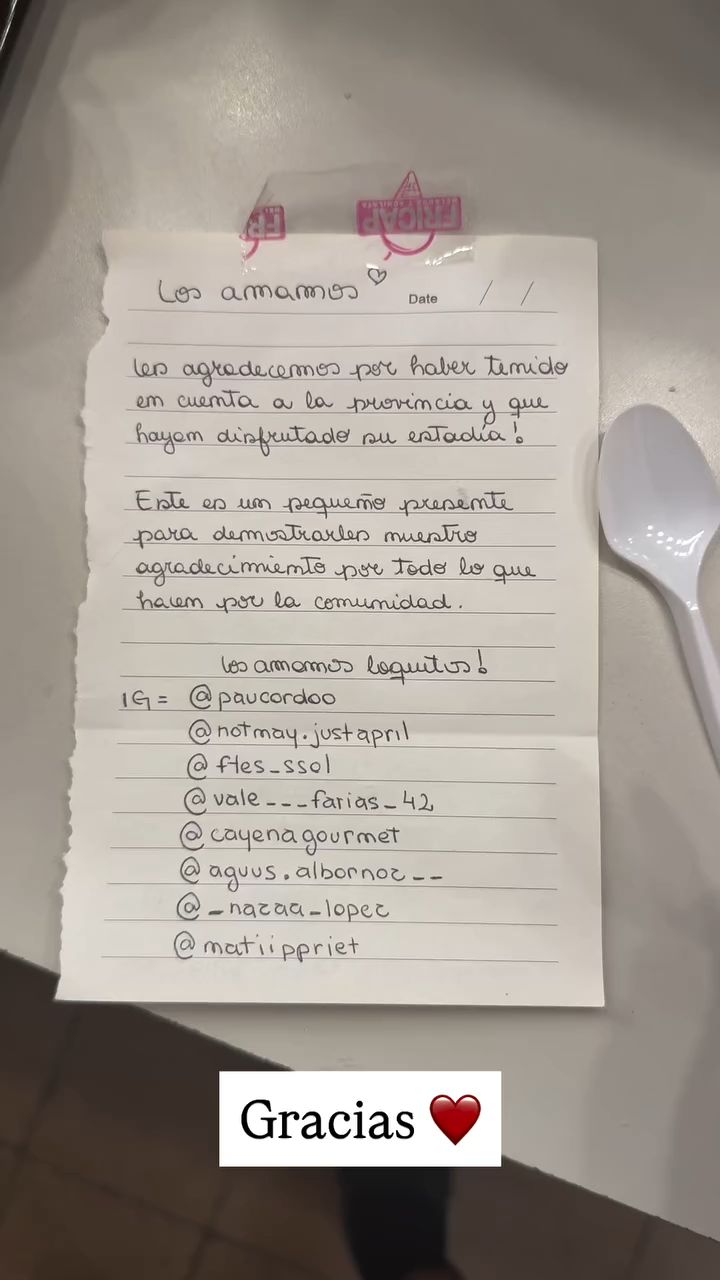 FRICAP
Los amamos ♡ Date / /
Les agradecemos por haber tenido
en cuenta a la provincia y que
hayan disfrutado su estadía!
Este es un pequeño presente
para demostrarles nuestro
agradecimiento por todo lo que
hacen por la comunidad.
Los amamos loquitos!
IG = @paucordoo
@notmay.justapril
@ftes_ssol
@vale___farias_42
@cayenagourmet
@aguus.albornoz__
@_nazaa_lopez
@matiippriet
Gracias ❤️